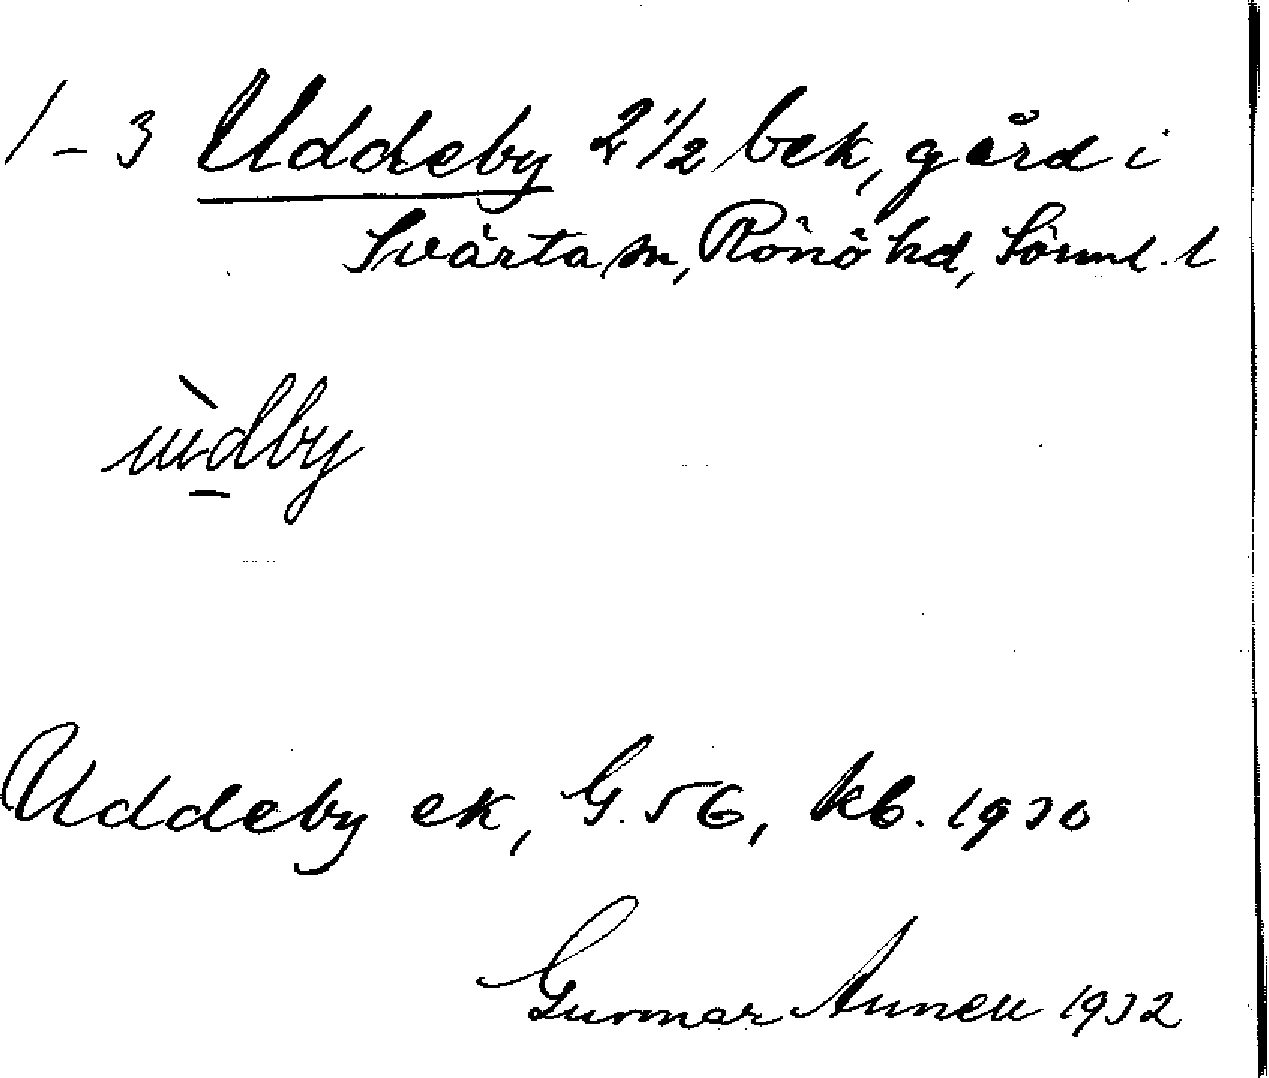 1-3 Uddeby 2 1/2 bek, gård i
Svärta sn, Rönö hd, Sörml. l
ùdby
Uddeby ek, G. 56, kb. 1930
Gunnar Annell 1932